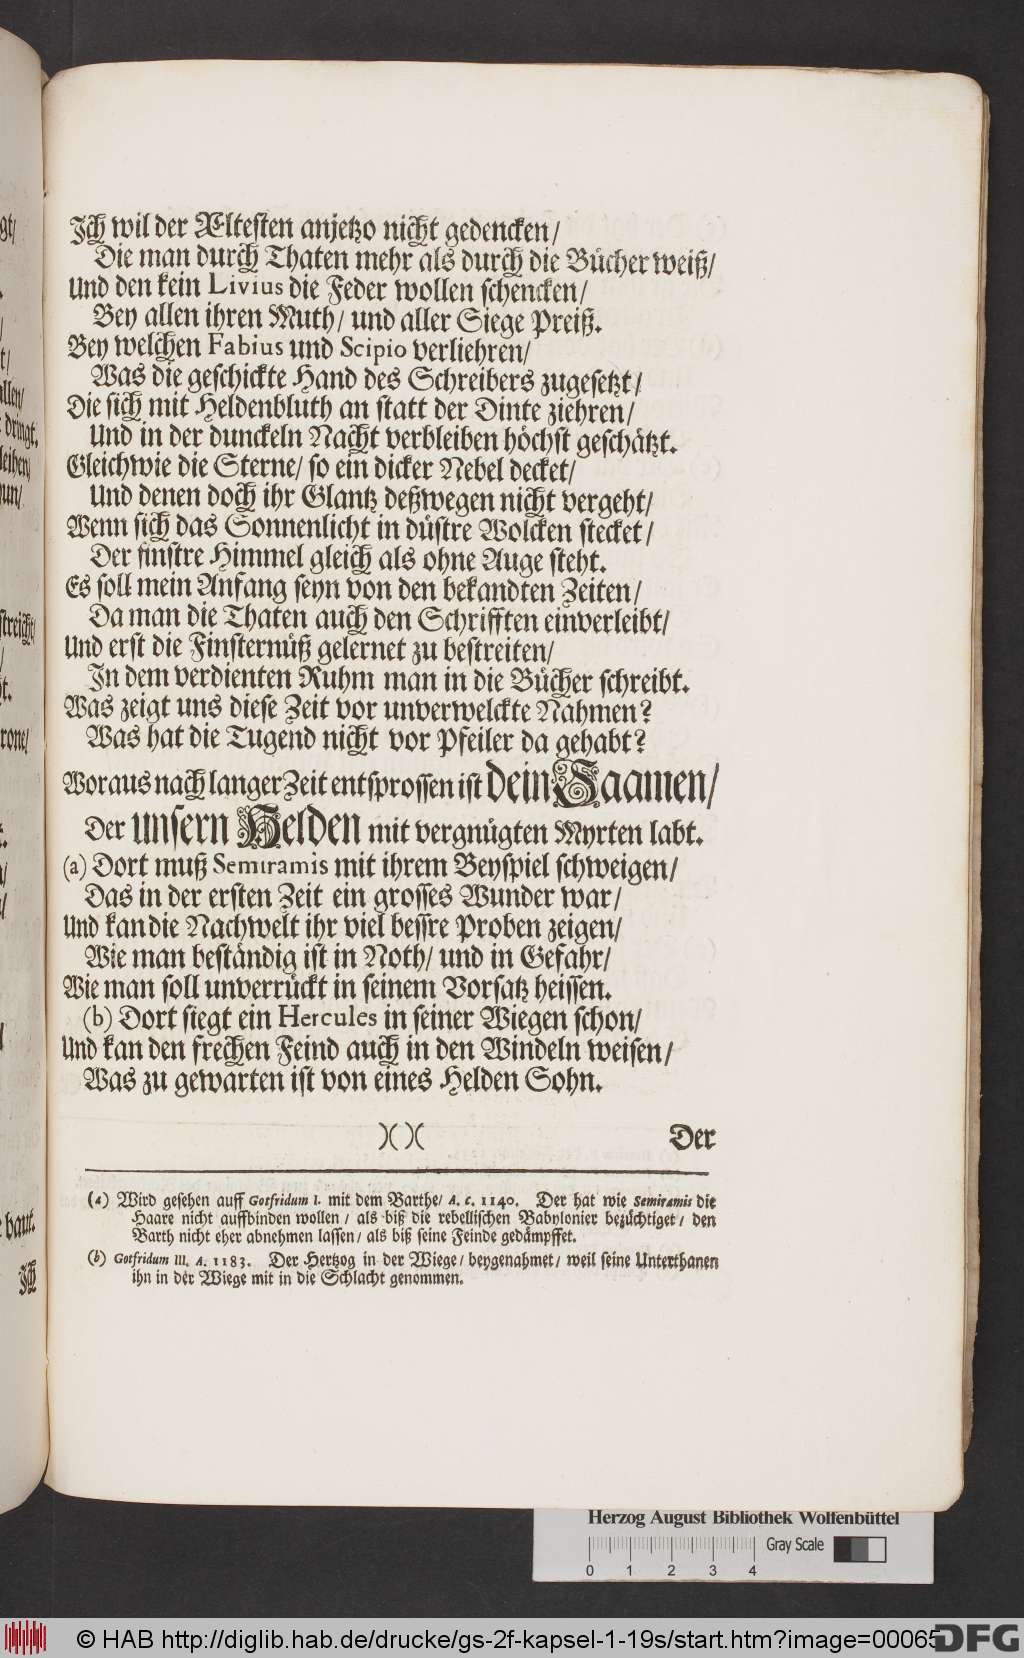 Ich wil der Æltesten anjetzo nicht gedencken/
Die man durch Thaten mehr als durch die Bücher weiß/
Und den kein Livius die Feder wollen schencken/
Bey allen ihren Muth/ und aller Siege Preiß.
Bey welchen Fabius und Scipio verliehren/
Was die geschickte Hand des Schreibers zugesetzt/
Die sich mit Heldenbluth an statt der Dinte ziehren/
Und in der dunckeln Nacht verbleiben höchst geschätzt.
Gleichwie die Sterne/ so ein dicker Nebel decket/
Und denen doch ihr Glantz deßwegen nicht vergeht/
Wenn sich das Sonnenlicht in düstre Wolcken stecket/
Der finstre Himmel gleich als ohne Auge steht.
Es soll mein Anfang seyn von den bekandten Zeiten/
Da man die Thaten auch den Schrifften einverleibt/
Und erst die Finsternüß gelernet zu bestreiten/
In dem verdienten Ruhm man in die Bücher schreibt.
Was zeigt uns diese Zeit vor unverwelckte Nahmen?
Was hat die Tugend nicht vor Pfeiler da gehabt?
Woraus nach langer Zeit entsprossen ist dein Saamen/
Der unsern Helden mit vergnügten Myrten labt.
(a) Dort muß Semiramis mit ihrem Beyspiel schweigen/
Das in der ersten Zeit ein grosses Wunder war/
Und kan die Nachwelt ihr viel bessre Proben zeigen/
Wie man beständig ist in Noth/ und in Gefahr/
Wie man soll unverrückt in seinem Vorsatz heissen.
(b) Dort siegt ein Hercules in seiner Wiegen schon/
Und kan den frechen Feind auch in den Windeln weisen/
Was zu gewarten ist von eines Helden Sohn.
)( )( Der
(a) Wird gesehen auff Gotfridum I. mit dem Barthe/ A. C. 1140. Der hat wie Semiramis die
Haare nicht auffbinden wollen/ als biß die rebellischen Babylonier bezüchtiget/ den
Barth nicht eher abnehmen lassen/ als biß seine Feinde gedämpffet.
(b) Gotfridum III. A. 1183. Der Hertzog in der Wiege/ beygenahmet/ weil seine Unterthanen
ihn in der Wiege mit in die Schlacht genommen.
Herzog August Bibliothek Wolfenbüttel
Gray Scale
0 1 2 3 4
© HAB http://diglib.hab.de/drucke/gs-2f-kapsel-1-19s/start.htm?image=00065
DFG